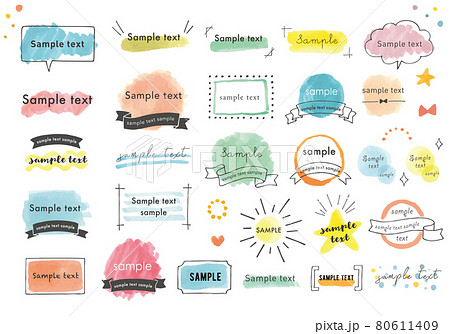 Sample text
Sample text
Sample text
Sample
sample text
Sample text
Sample text
sample text sample
sample text
Sample text
sample text sample
Sample text
sample text sample
sample text
sample text sample
sample text
Sample
sample text sample
sample
sample text sample
Sample
text
Sample
text
Sample text
sample text sample
Sample text
sample
SAMPLE
sample
text
sample
sample text
sample
text
Sample text
sample
sample text sample
SAMPLE
Sample text
SAMPLE TEXT
sample text
PIXTA
pixta.jp - 80611409